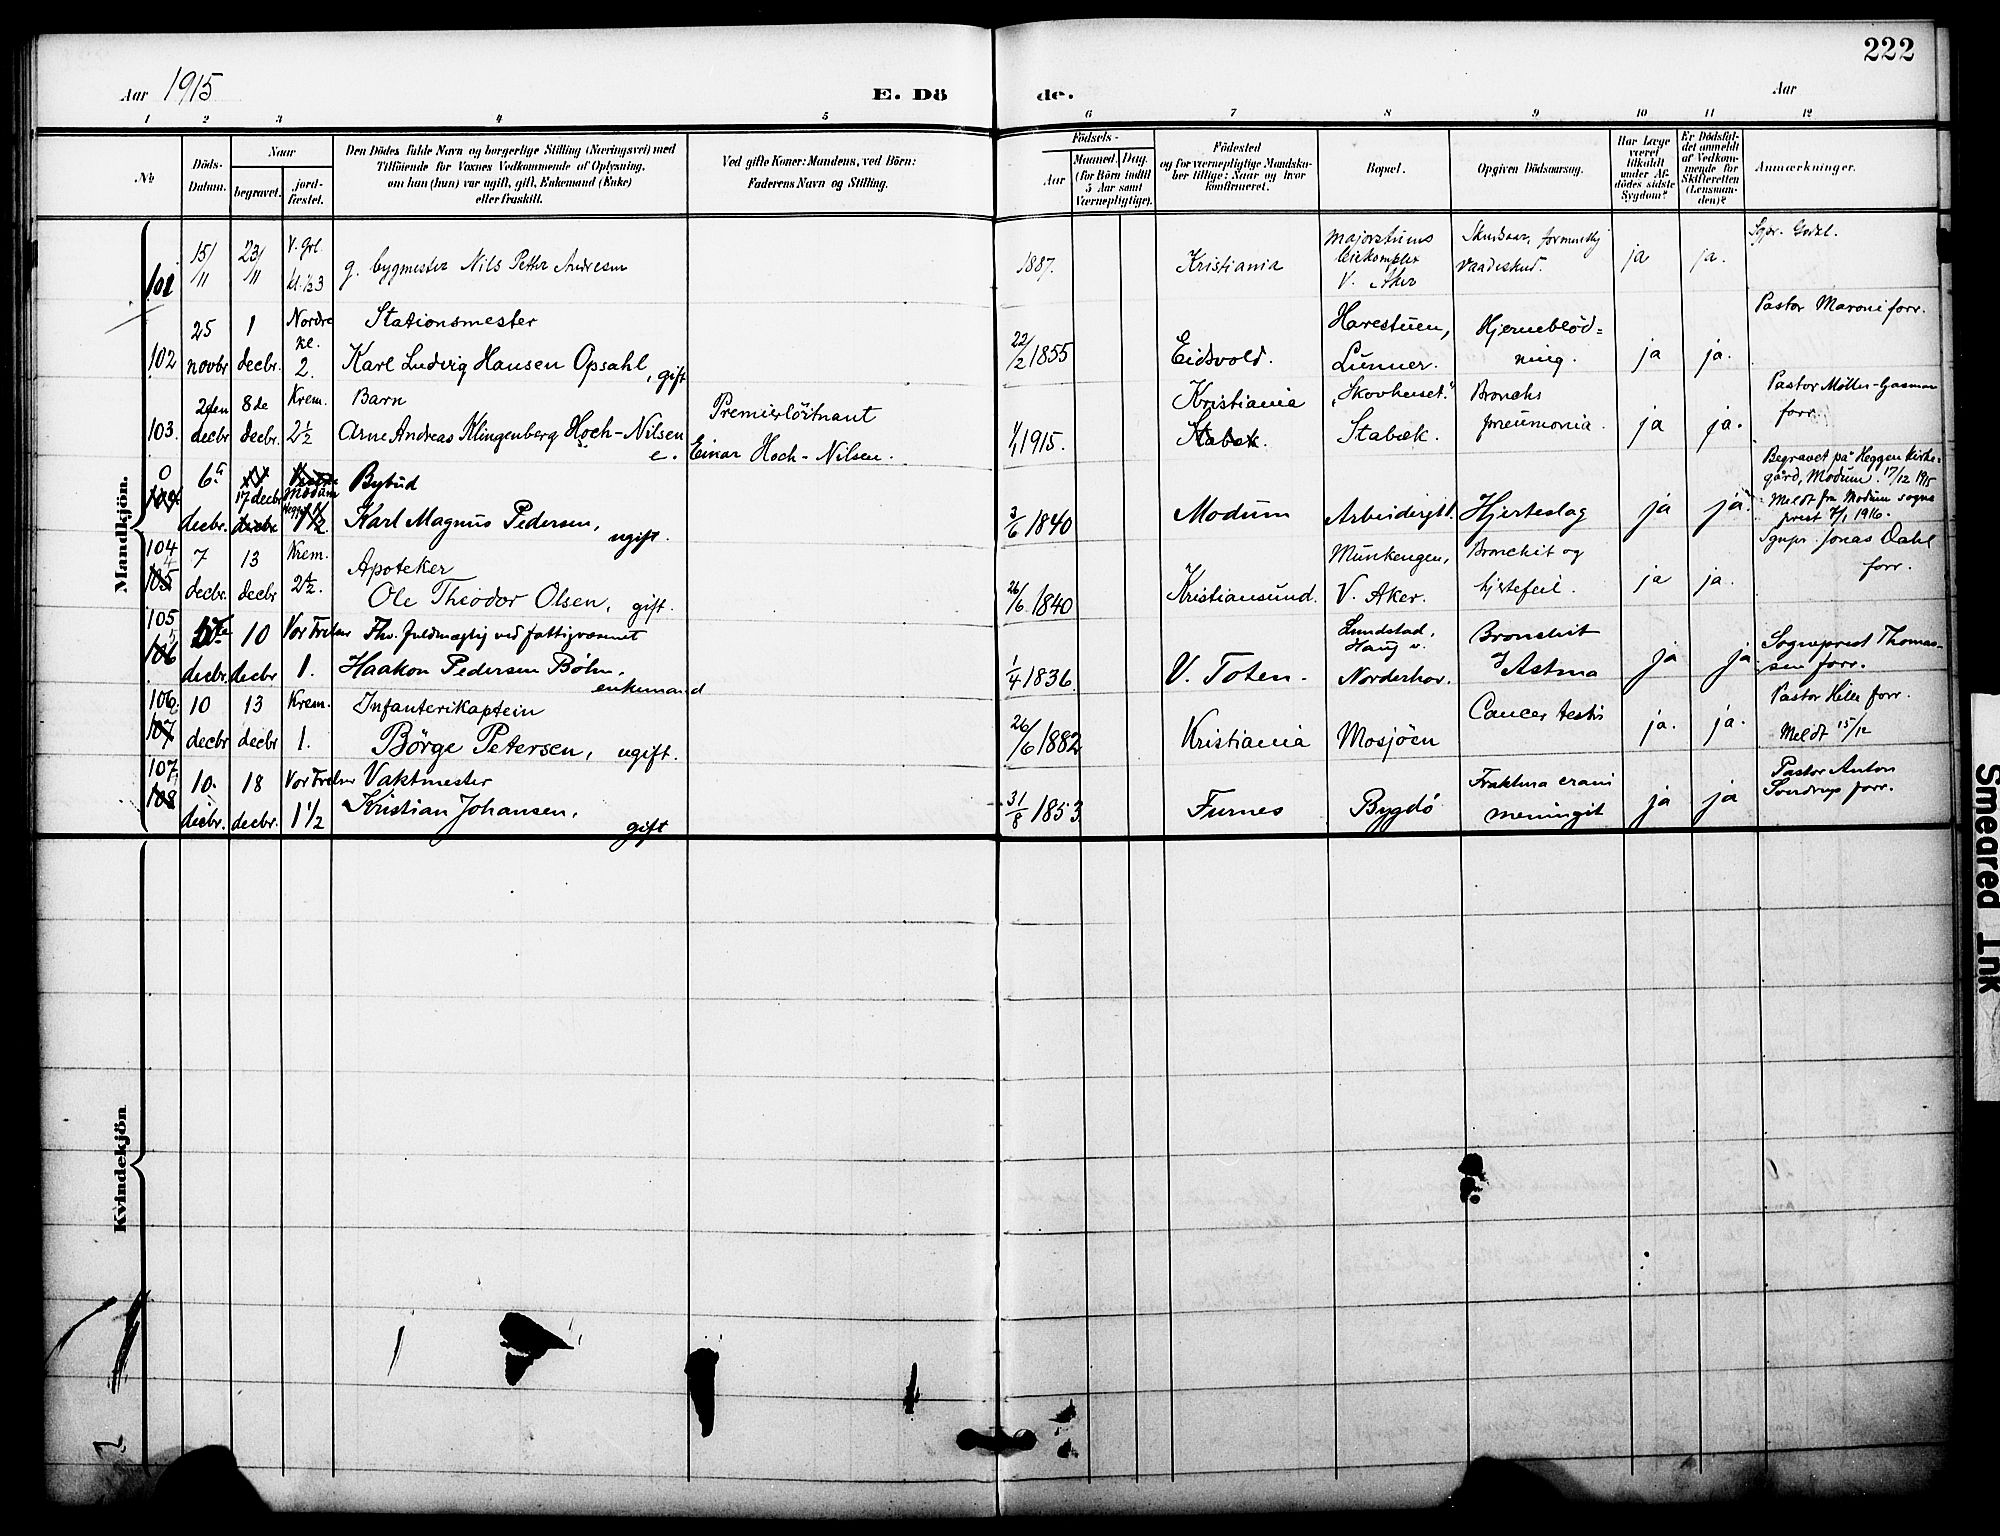 222
Aar 1915
E. Dö de.
Aar
1 2 3 4 5 6 7 8 9 10 11 12
No
Döds-Datum.
Naar
begravet.
jord-fæstet.
Den Dödes fulde Navn og borgerlige Stilling (Næringsvei) med
Tilföiende for Voxnes Vedkommende af Oplysning,
om han (hun) var ugift, gift, Enkemand (Enke)
eller fraskilt.
Ved gifte Koner: Mandens, ved Börn:
Faderens Navn og Stilling.
Födsels-
Aar
Maaned. Dag.
(for Börn indtil
5 Aar samt
Værnepligtige).
Födested
og for værnepligtige Mandska-
ber tillige: Naar og hvor
konfirmeret.
Bopæl.
Opgiven Dödsaarsag.
Har Læge
været
tilkaldt
under Af-
dödes sidste
Sygdom?
Er Dödsfal-
det anmeldt
af Vedkom-
mende for
Skifteretten
(Lensman-
den)?
Anmærkninger.
Mandkjön.
101 15/11 23/11 V. Grl. kl. 1/2 3
g. bygmester Nils Petter Andresen
1887. Kristiania
Majorstuens
V. Aker
Vaadeskud.
ja ja.
102 25 novbr 1 decbr. Nordre kl. 2.
Stationsmester
Karl Ludvig Hansen Opsahl, gift
22/2 1855 Eidsvold.
Harestuen,
Lunner.
Hjerneblöd=
ning.
ja ja.
Pastor Maroni forr.
103. 2den decbr 8de decbr. Krem. 2 1/2
Barn
Arne Andreas Klingenberg Hoch-Nilsen
e.
Premierlöitnant
Einar Hoch-Nilsen.
1/1 1915.
Kristiania
Stabæk.
"Skovhuset"
Stabæk.
Broncho
pneumonia.
ja ja.
Pastor Möller-Gasman
forr.
0 104 6te decbr. 17 decbr decbr Modum Heggen 1 1/2
Bybud
Karl Magnus Pedersen, ugift.
3/6 1840 Modum Arbeidergt. Hjerteslag ja ja.
Begravet på Heggen Kirke-
gård, Modum. 17/12 1915
Meldt fra Modum sogne
prest 7/1 1916.
104 105 7 decbr. 13 decbr Krem. 2 1/2.
Apoteker
Ole Theodor Olsen, gift.
26/6 1840 Kristiansund.
Munkengen,
V. Aker.
Bronchit og
hjertefeil.
ja ja.
Sgnpr. Jonas Dahl
forr.
105 106 decbr. 10 decbr Vor Frelser 1.
Fhv. fuldmægtig ved fattigvæsenet
Haakon Pedersen Böhn,
enkemand
1/4 1836. V. Toten.
Lundstad,
Haug v.
Norderhov.
Bronchit
& Astma
ja ja
Sogneprest Thomas-
sen forr.
106 107 10 decbr 13 decbr Krem. 1.
Infanterikaptein
Börge Petersen, ugift.
26/6 1882 Kristiania Mosjöen
Cancer testis
ja. ja.
Pastor Hille forr.
Meldt 15/12
107 108 10. decbr. 18 decbr. Vor Frelser 1 1/2
Vaktmester
Kristian Johansen,
gift
31/8 1853 Furnes Bygdö
Fraktura crani
meningit
ja ja
Pastor Anton
Sverdrup forr.
Kvindekjön
Smeared Ink